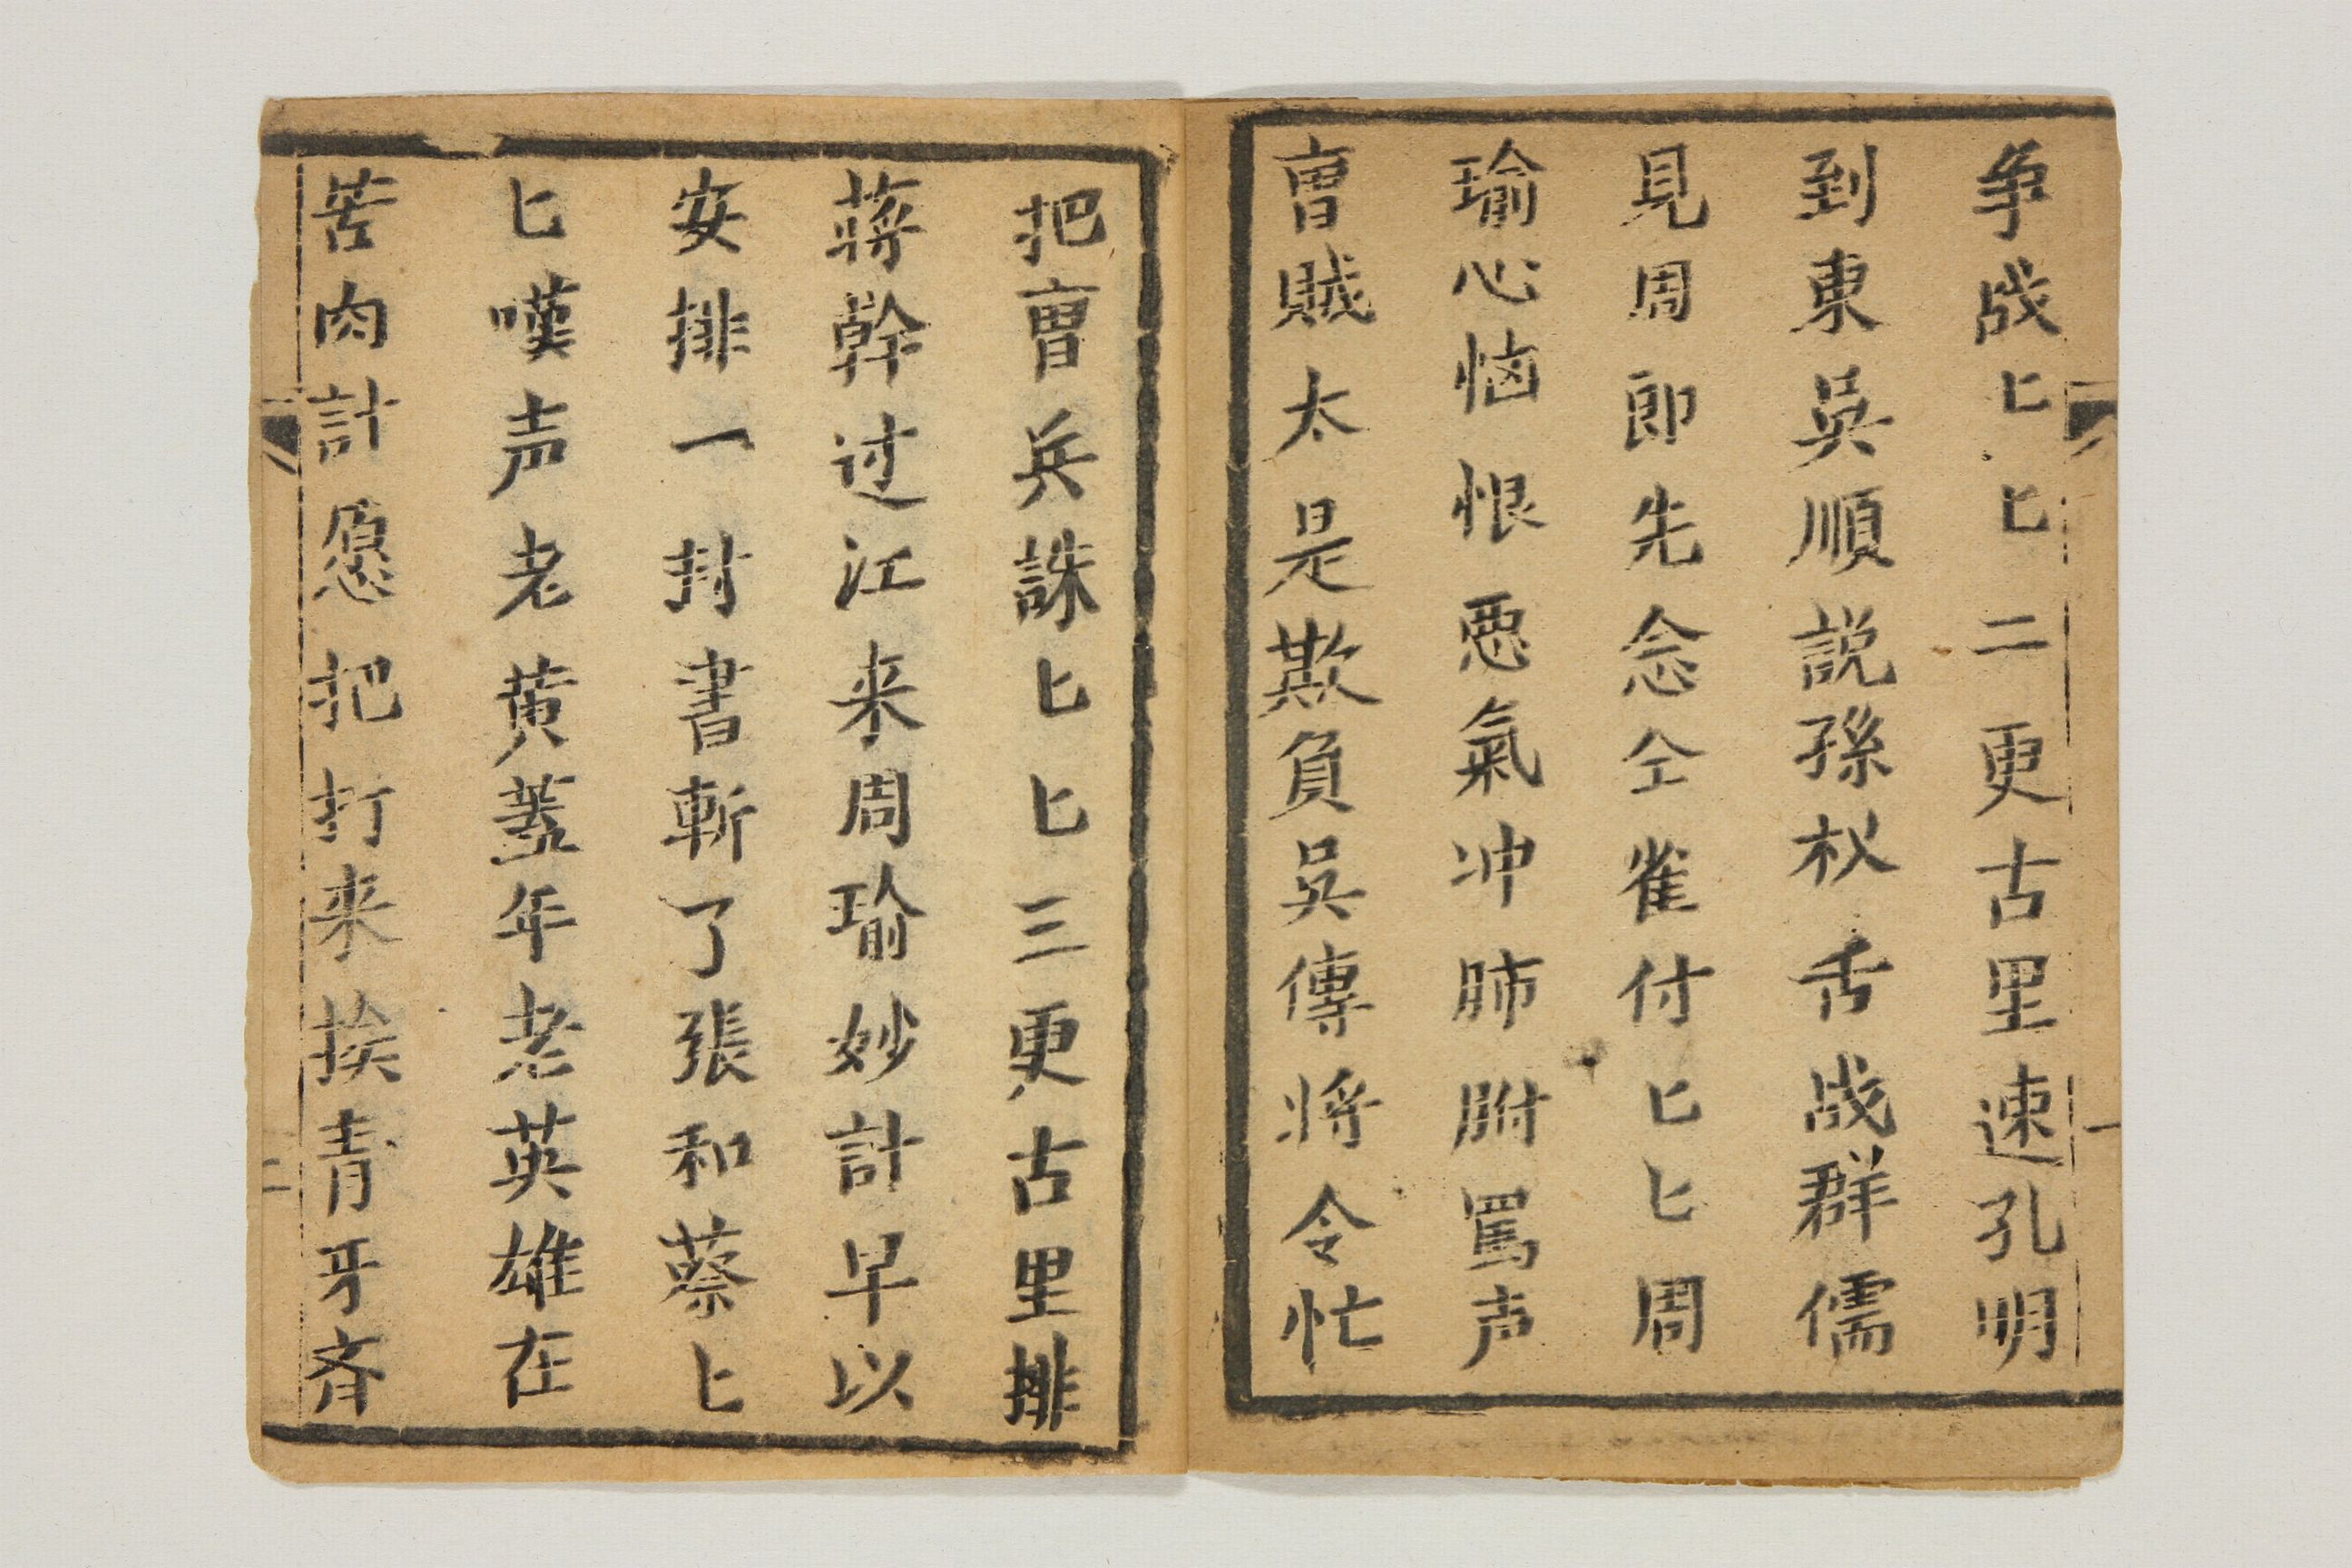 争战匕匕二更古里速孔明
到東吳順説孫权舌战群儒
見周郎先念仝雀付匕匕周
瑜心恼恨惡氣冲肺腑罵声
曹賊太是欺負吳傳将令忙
一
把曹兵誅匕匕三更古里排
蒋幹过江来周瑜妙計早以
安排一封書斬了張和蔡匕
匕嘆声老黄蓋年老英雄在
苦肉計愿把打来挨青牙斉
二